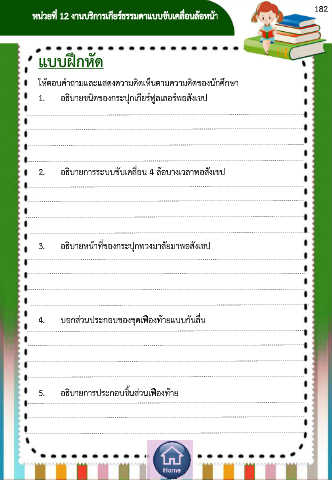 182
หน่วยที่ 12 งานบริการเกียร์ธรรมดาแบบขับเคลื่อนล้อหน้า
แบบฝึกหัด
ให้ตอบคำถามและแสดงความคิดเห็นตามความคิดของนักศึกษา
1. อธิบายชนิดของกระปุกเกียร์ฟูลเลอร์พอสังเขป
2. อธิบายการระบบขับเคลื่อน 4 ล้อบางเวลาพอสังเขป
3. อธิบายหน้าที่ของกระปุกพวงมาลัยมาพอสังเขป
4. บอกส่วนประกอบของชุดเฟืองท้ายแบบกันลื่น
5. อธิบายการประกอบชิ้นส่วนเฟืองท้าย
Home